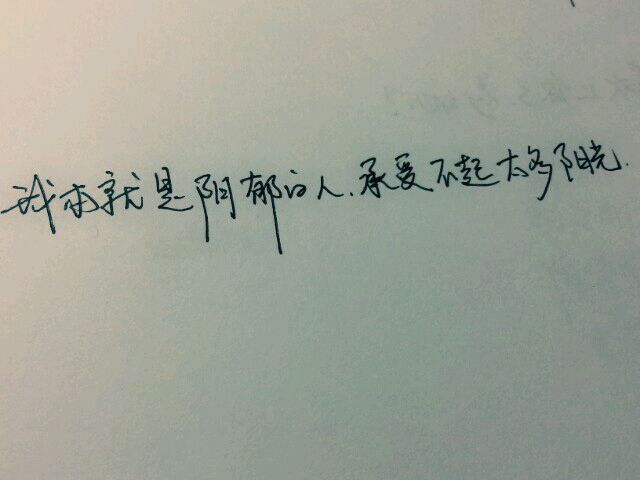 我本就是阴郁的人.承受不起太多阳光.